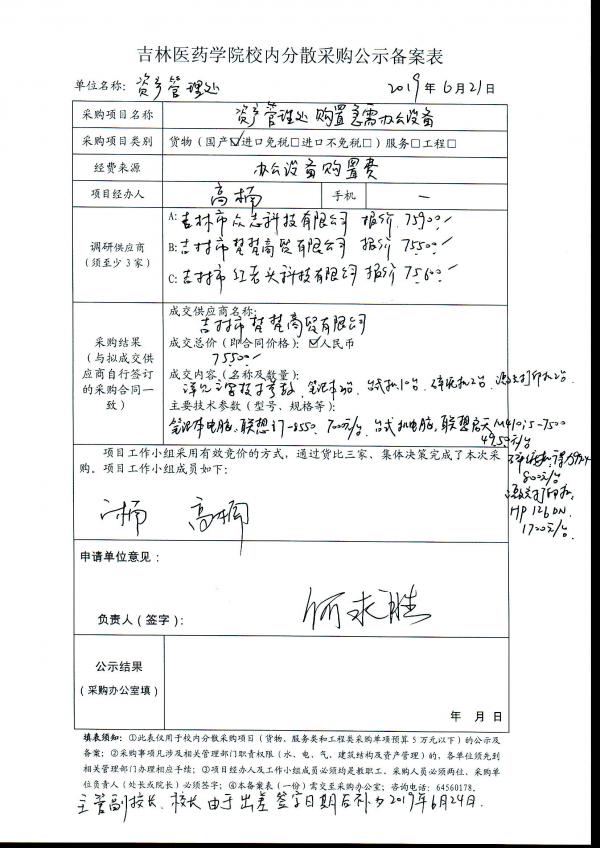 吉林医药学院校内分散采购公示备案表
单位名称：资产管理处 2019年6月21日
采购项目名称 资产管理处购置急需办公设备
采购项目类别 货物（国产☑进口免税□进口不免税□）服务□工程□
经费来源 办公设备购置费
项目经办人 高楠 手机 —
调研供应商
（须至少3家）
A:吉林市众志科技有限公司 报价 75900/
B:吉林市梵梵商贸有限公司 报价 75500/
C:吉林市红石头科技有限公司 报价 75600/
采购结果
（与拟成交供
应商自行签订
的采购合同一
致）
成交供应商名称：
吉林市梵梵商贸有限公司
成交总价（即合同价格）：☑人民币
75500/
成交内容（名称及数量）：
笔记本2台 台式机10台 碎纸机2台 激光打印机2台
主要技术参数（型号、规格等）：
笔记本电脑，联想i7-8550 台式机电脑，联想启天M410,i5-7500
4950元/台
800元/台
激光打印机
HP 126DN
1700元/台
项目工作小组采用有效竞价的方式，通过货比三家、集体决策完成了本次采
购。项目工作小组成员如下：
高楠
申请单位意见：
负责人（签字）： 何求胜
公示结果
（采购办公室填）
年 月 日
填表须知：①此表仅用于校内分散采购项目（货物、服务类和工程类采购单项预算5万元以下）的公示及
备案；②采购事项凡涉及相关管理部门职责权限（水、电、气、建筑结构及资产管理）的，各单位须先到
相关管理部门办理相应手续；③项目经办人及工作小组成员必须均是教职工，采购人员必须两位，采购单
位负责人（处长或院长）必须签字；④本备案表（一份）需交至采购办公室；咨询电话：64560178。
主管副校长、校长由于出差签字日期后补为2019年6月24日。